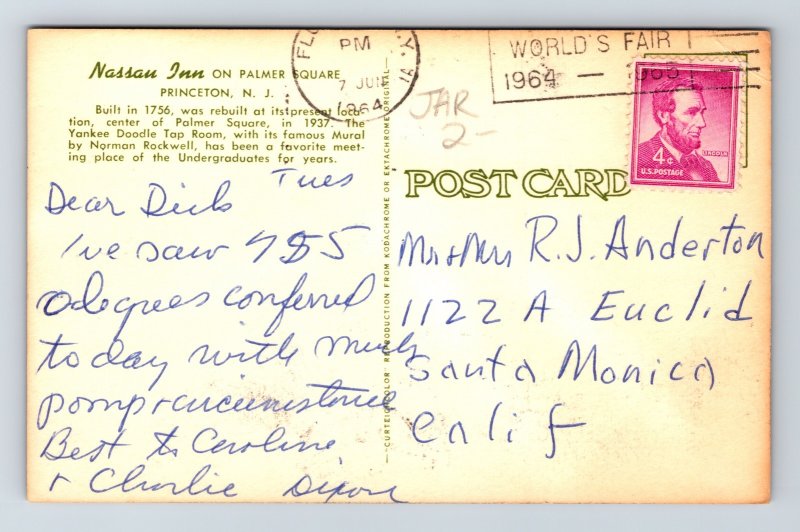 Nassau Inn ON PALMER SQUARE
PRINCETON, N. J.
Built in 1756, was rebuilt at its present loca-
tion, center of Palmer Square, in 1937. The
Yankee Doodle Tap Room, with its famous Mural
by Norman Rockwell, has been a favorite meet-
ing place of the Undergraduates for years.
Tues
Dear Dick
I've saw 955
degrees conferred
today with much
pomp & circumstance
Best to Caroline
+ Charlie Dixon
CURTEICHCOLOR REPRODUCTION FROM KODACHROME OR EKTACHROME ORIGINAL
FLU
N.Y.
PM
7 JUN
1964
WORLD'S FAIR
1964 — 1965
JAR
2-
4¢
LINCOLN
U.S. POSTAGE
POST CARD
Mr & Mrs R. J. Anderton
1122 A Euclid
Santa Monica
Calif